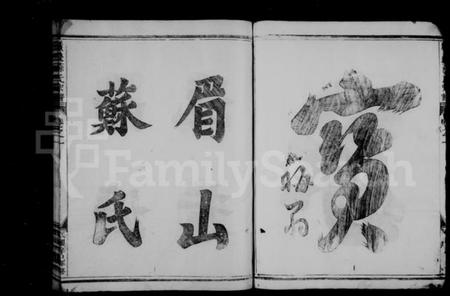 寶
眉山
蘇氏
FamilySearch